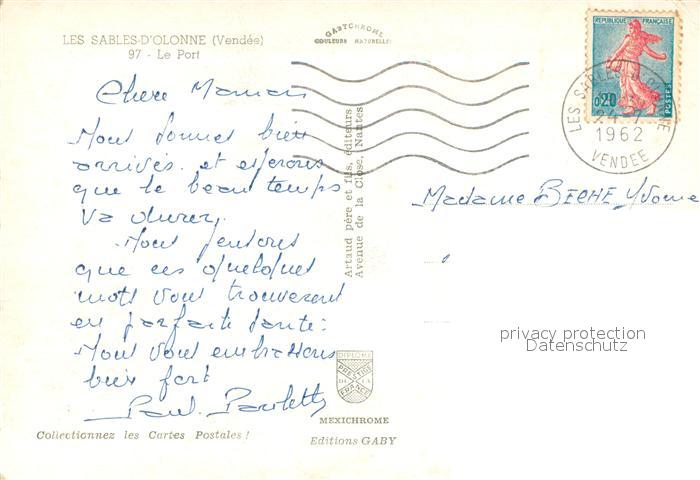 LES SABLES-D'OLONNE (Vendée)
97 - Le Port
GABYCHROME
COULEURS NATURELLES
REPUBLIQUE FRANÇAISE
0,20
POSTES
LES SABLES D'OLONNE
24-7
1962
VENDEE
Chere Maman
Nous sommes bien
arrivés et esperons
que le beau temps
va durer.
Nous pensons
que ces quelques
mots vous trouveront
en parfaite santé:
Nous vous embrassons
bien fort
Paul. Paulette
Artaud père et fils, éditeurs
Avenue de la Close, Nantes
Madame BECHE Yvonne
privacy protection
Datenschutz
DIPLOME
PRESTIGE
DE LA
FRANCE
MEXICHROME
Collectionnez les Cartes Postales !
Editions GABY